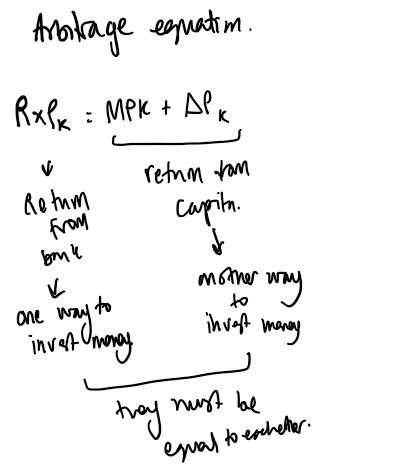 Arbitrage equation.
R×Pₖ = MPK + ΔPₖ
Return
from
bank
one way to
invest money
return from
capital.
another way
to
invest money
they must be
equal to eachother.